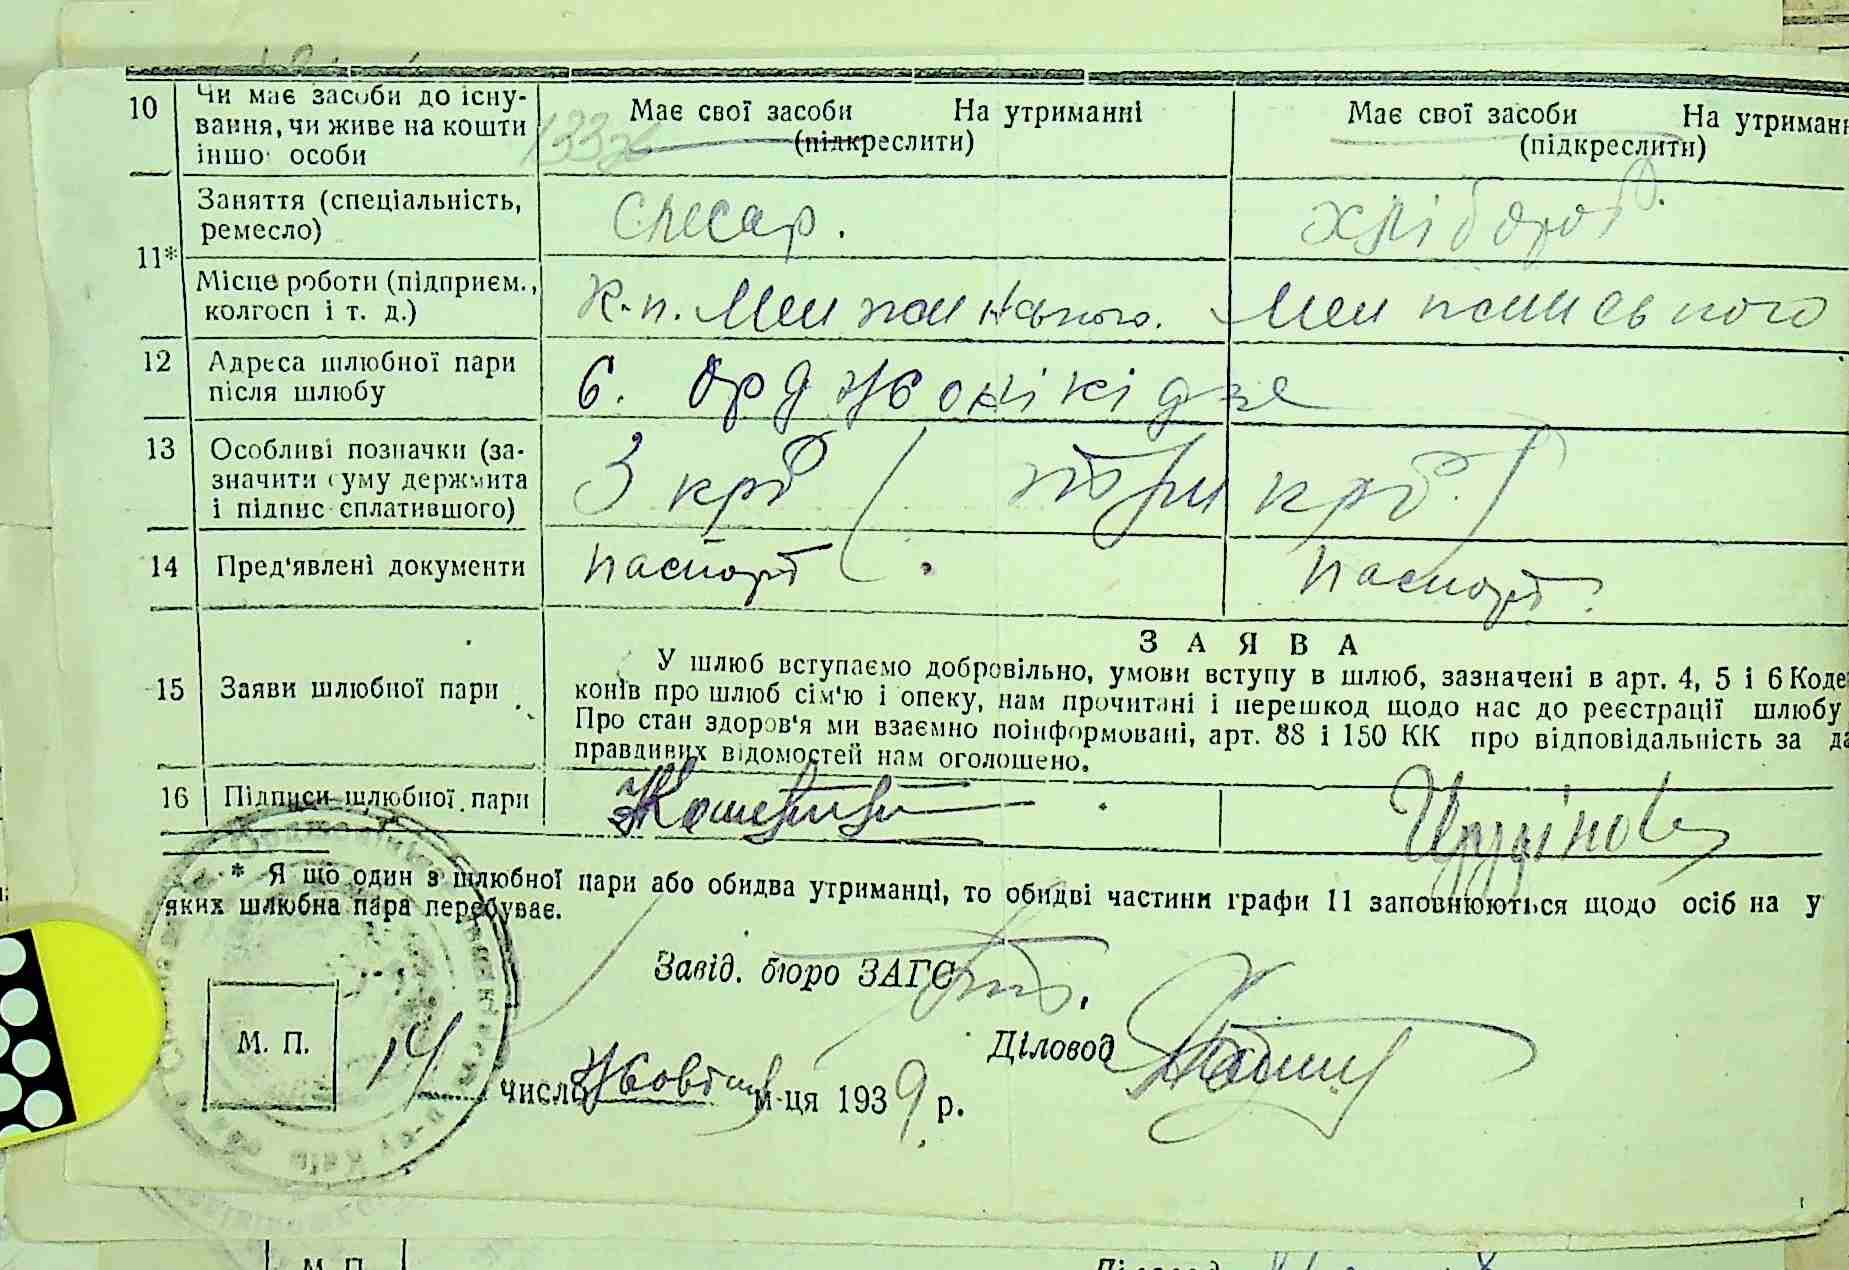 10 Чи має засоби до існу-
вання, чи живе на кошти
іншо особи
Має свої засоби На утриманні
(підкреслити)
Має свої засоби На утриман
(підкреслити)
11*
Заняття (спеціальність,
ремесло)
слюсар.
хлібороб.
Місце роботи (підприєм.,
колгосп і т. д.)
12 Адреса шлюбної пари
після шлюбу
б. Орджонікідзе
13 Особливі позначки (за-
значити суму держмита
і підпис сплатившого)
3 крб ( три крб. )
14 Пред'явлені документи
паспорт
паспорт.
15 Заяви шлюбної пари
ЗАЯВА
У шлюб вступаємо добровільно, умови вступу в шлюб, зазначені в арт. 4, 5 і 6 Коде
конів про шлюб сім'ю і опеку, нам прочитані і перешкод щодо нас до реєстрації шлюбу
Про стан здоров'я ми взаємно поінформовані, арт. 88 і 150 КК про відповідальність за да
правдивих відомостей нам оголошено.
16 Підписи шлюбної пари
* Я що один з шлюбної пари або обидва утриманці, то обидві частини графи 11 заповнюються щодо осіб на у
яких шлюбна пара перебуває.
Завід. бюро ЗАГС
Діловод
М. П.
14 число Жовтня м-ця 1939 р.
М. П.
Діловод